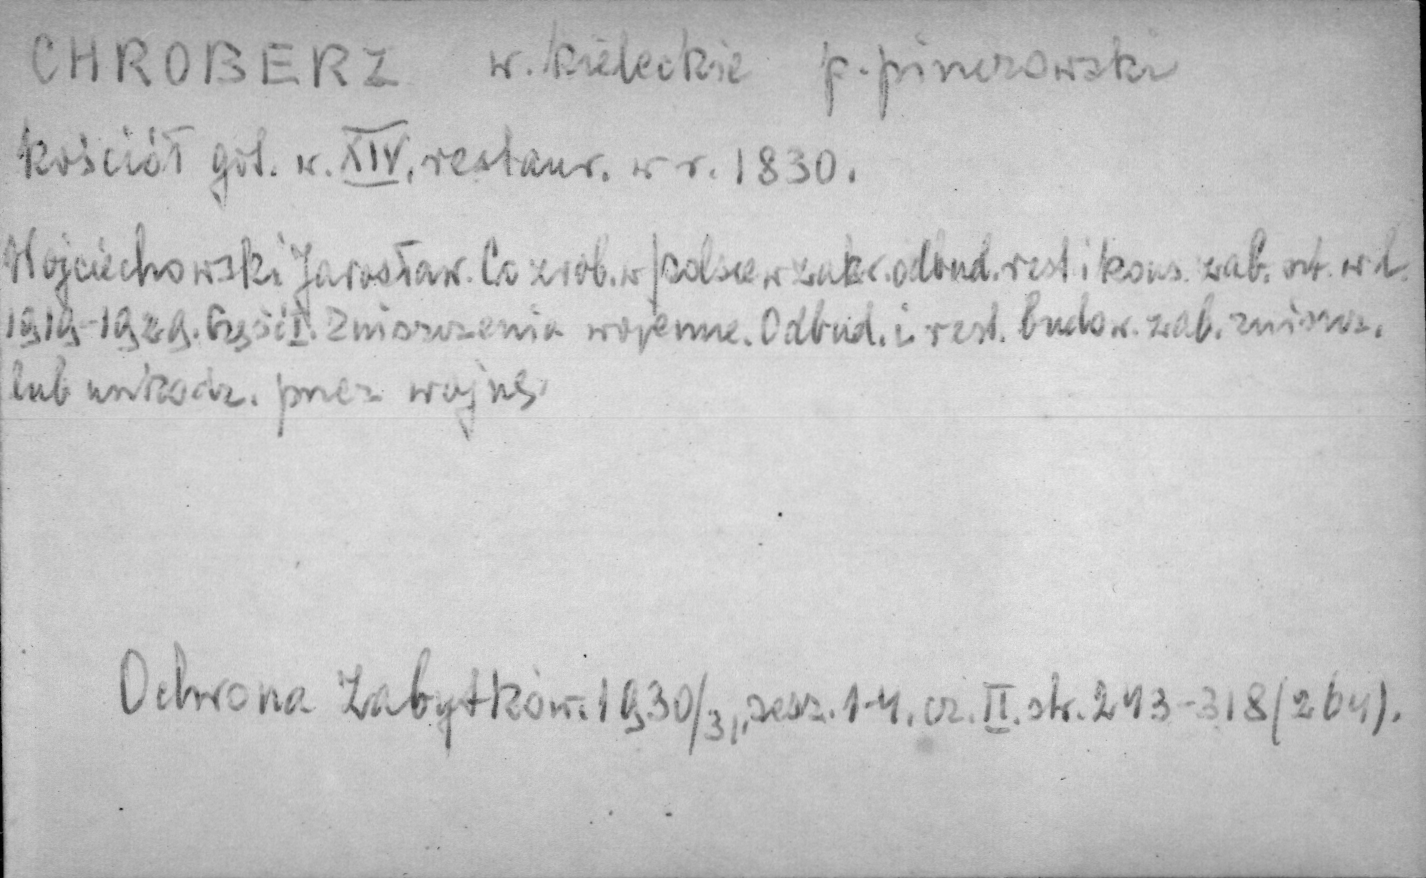 CHROBERZ w. kieleckie p. pinczowski
kościół got. w. XIV, restaur. w r. 1830.
Wojciechowski Jarosław. Co zrob. w Polsce w zakr. odbud. rest i kons. zab. szt. w l.
1919-1929. Część I. Zniszczenia wojenne. Odbud. i rest. budow. zab. zniszcz.
lub uszkodz. przez wojnę.
Ochrona Zabytków. 1930/31, zesz. 1-4. cz. II. str. 243-318 (264).